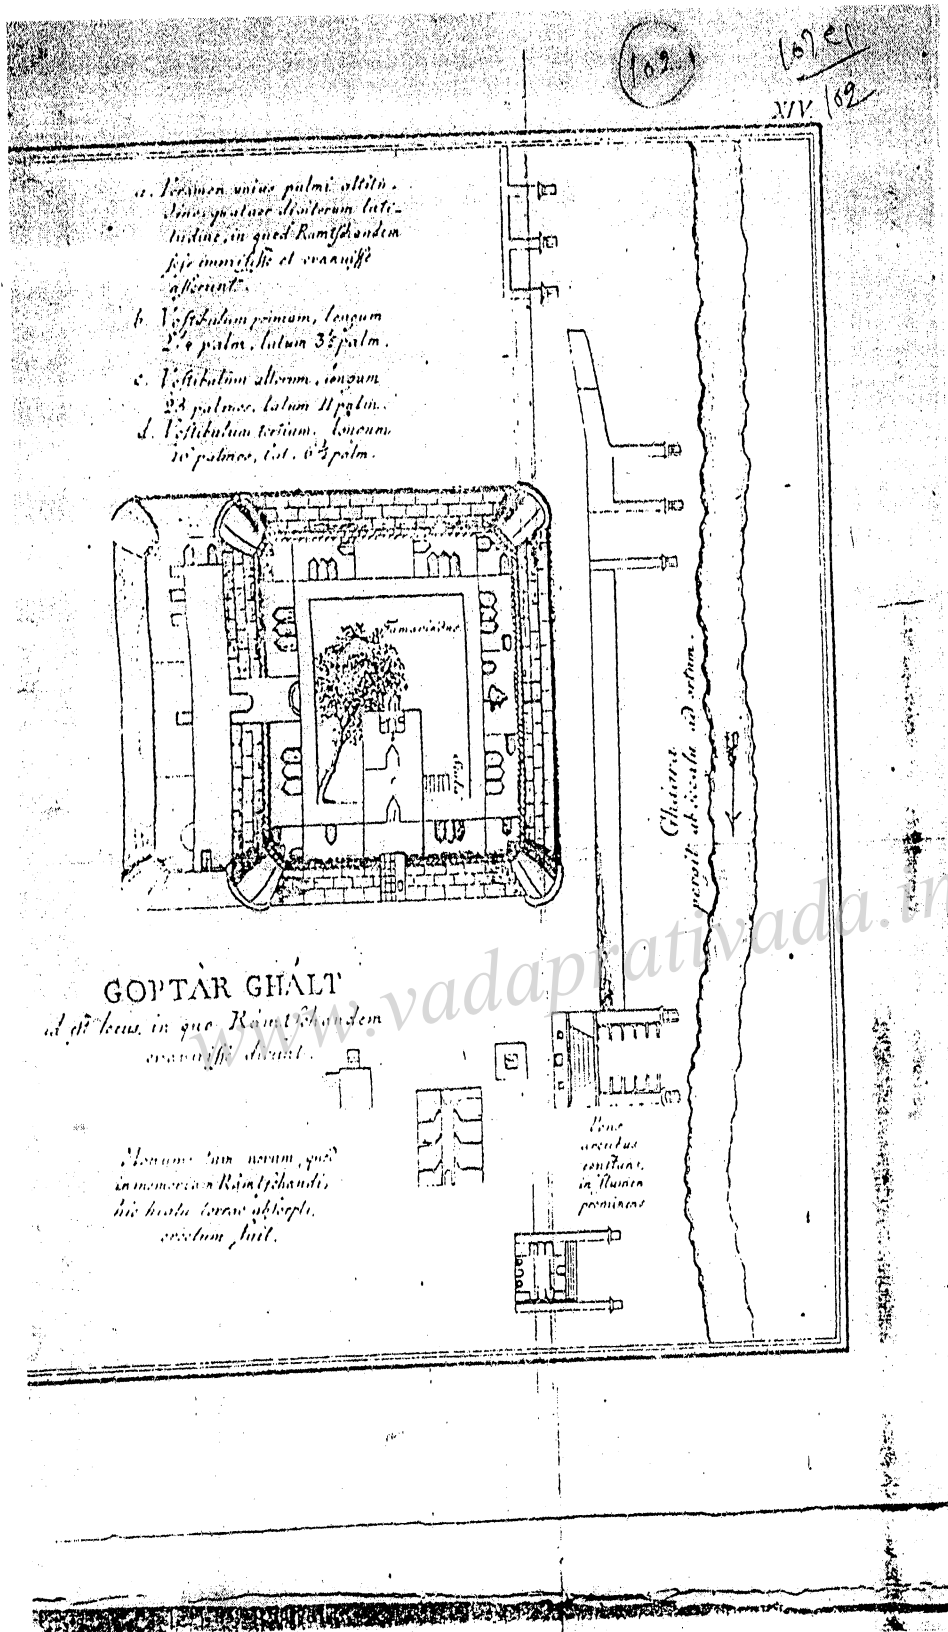 102
102
XIV.
a. Foramen unius palmi altitu-
dine, quatuor digitorum lati-
tudine, in quod Ramtschandem
sese immisisse et evanuisse
asserunt.
b. Vestibulum primum, longum
palm. latum 3½ palm.
c. Vestibulum alterum, longum
23 palmos, latum 11 palm.
d. Vestibulum tertium, longum
10 palmos, lat. 6½ palm.
Tamarindus
Scala
Ghagra
pergit ab occasu ad ortum.
www.vadaprativada.in
GOPTÀR GHÁLT
id est locus, in quo Rámtschandem
evanuisse dicunt.
Monumentum novum, quod
in memoriam Rámtschandi,
hic hiatu terrae absorpti,
erectum fuit.
Pons
arcubus
constans,
in flumen
prominens